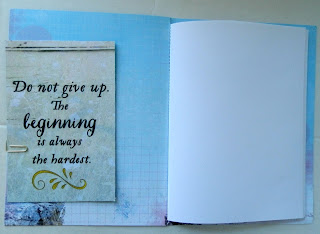 Do not give up.
The
beginning
is always
the hardest.